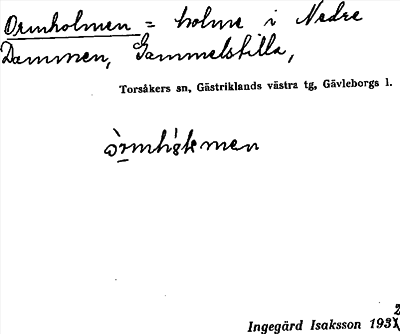 Ormholmen = holme i Nedre
Dammen, Gammelstilla,
Torsåkers sn, Gästriklands västra tg, Gävleborgs l.
Ingegärd Isaksson 1932